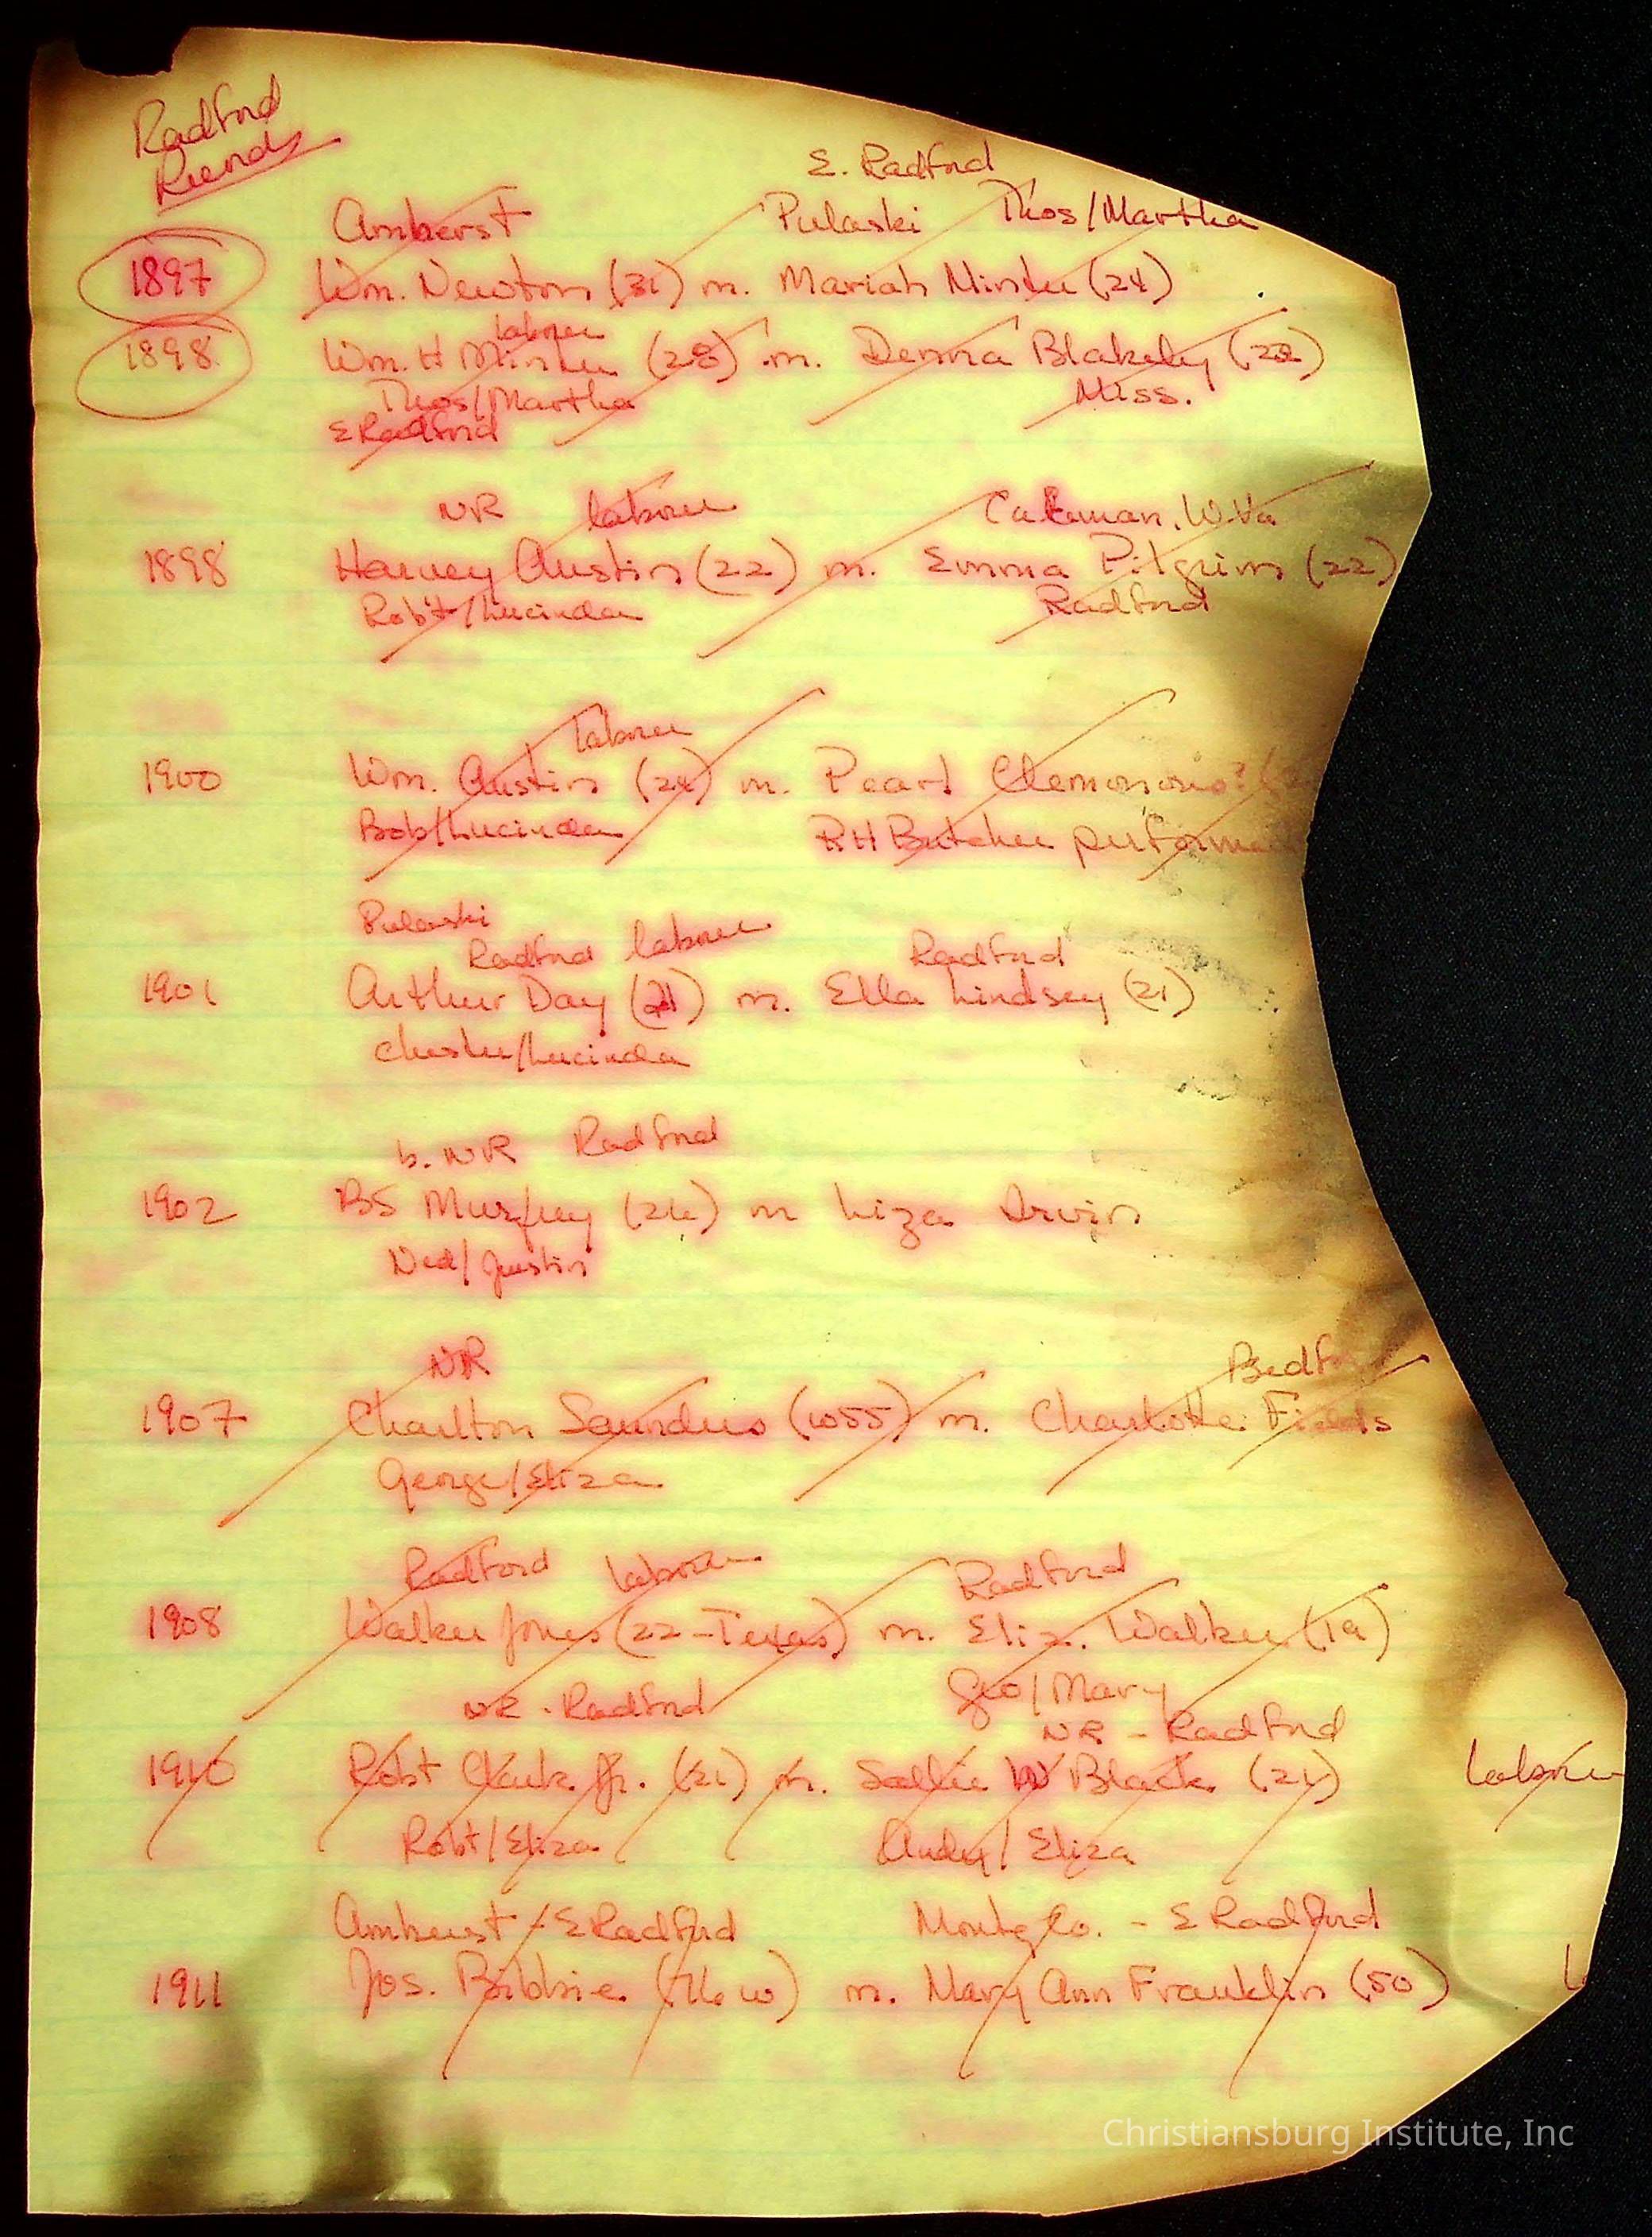 Radford
Records
E. Radford
Amherst Pulaski Thos/Martha
1897 Wm. Newton (31) m. Mariah Minter (24)
laborer
1898 Wm. H Minter (28) m. Blakely (22)
Thos/Martha Miss.
E Radford
NR laborer W.Va
1898 Harvey Austin (22) m. Emma Pilgrim (22)
Robt/Lucinda Radford
laborer
1900 Wm. Austin (24) m. Pearl
Bob/Lucinda RH Butcher performed
Pulaski
Radford laborer Radford
1901 Arthur Day (21) m. Ella Lindsey (21)
Chester/Lucinda
b. NR Radford
1902 BS (26) m Liza Irvin
Ned/Justin
NR Bedf
1907 Charlton Saunders (w55) m. Charlotte Fields
George/Eliza
Radford laborer Radford
1908 Walker Jones (22-Texas) m. Eliz. Walker (19)
Geo/Mary
NR - Radford NR - Radford
1910 Robt Clark Jr. (21) m. Sallie W Black (21) laborer
Robt/Eliza Andy/Eliza
Amherst - E Radford Montg Co. - E Radford
1911 Jos. Bibbie (76 w) m. Mary Ann Franklin (50) l
Christiansburg Institute, Inc